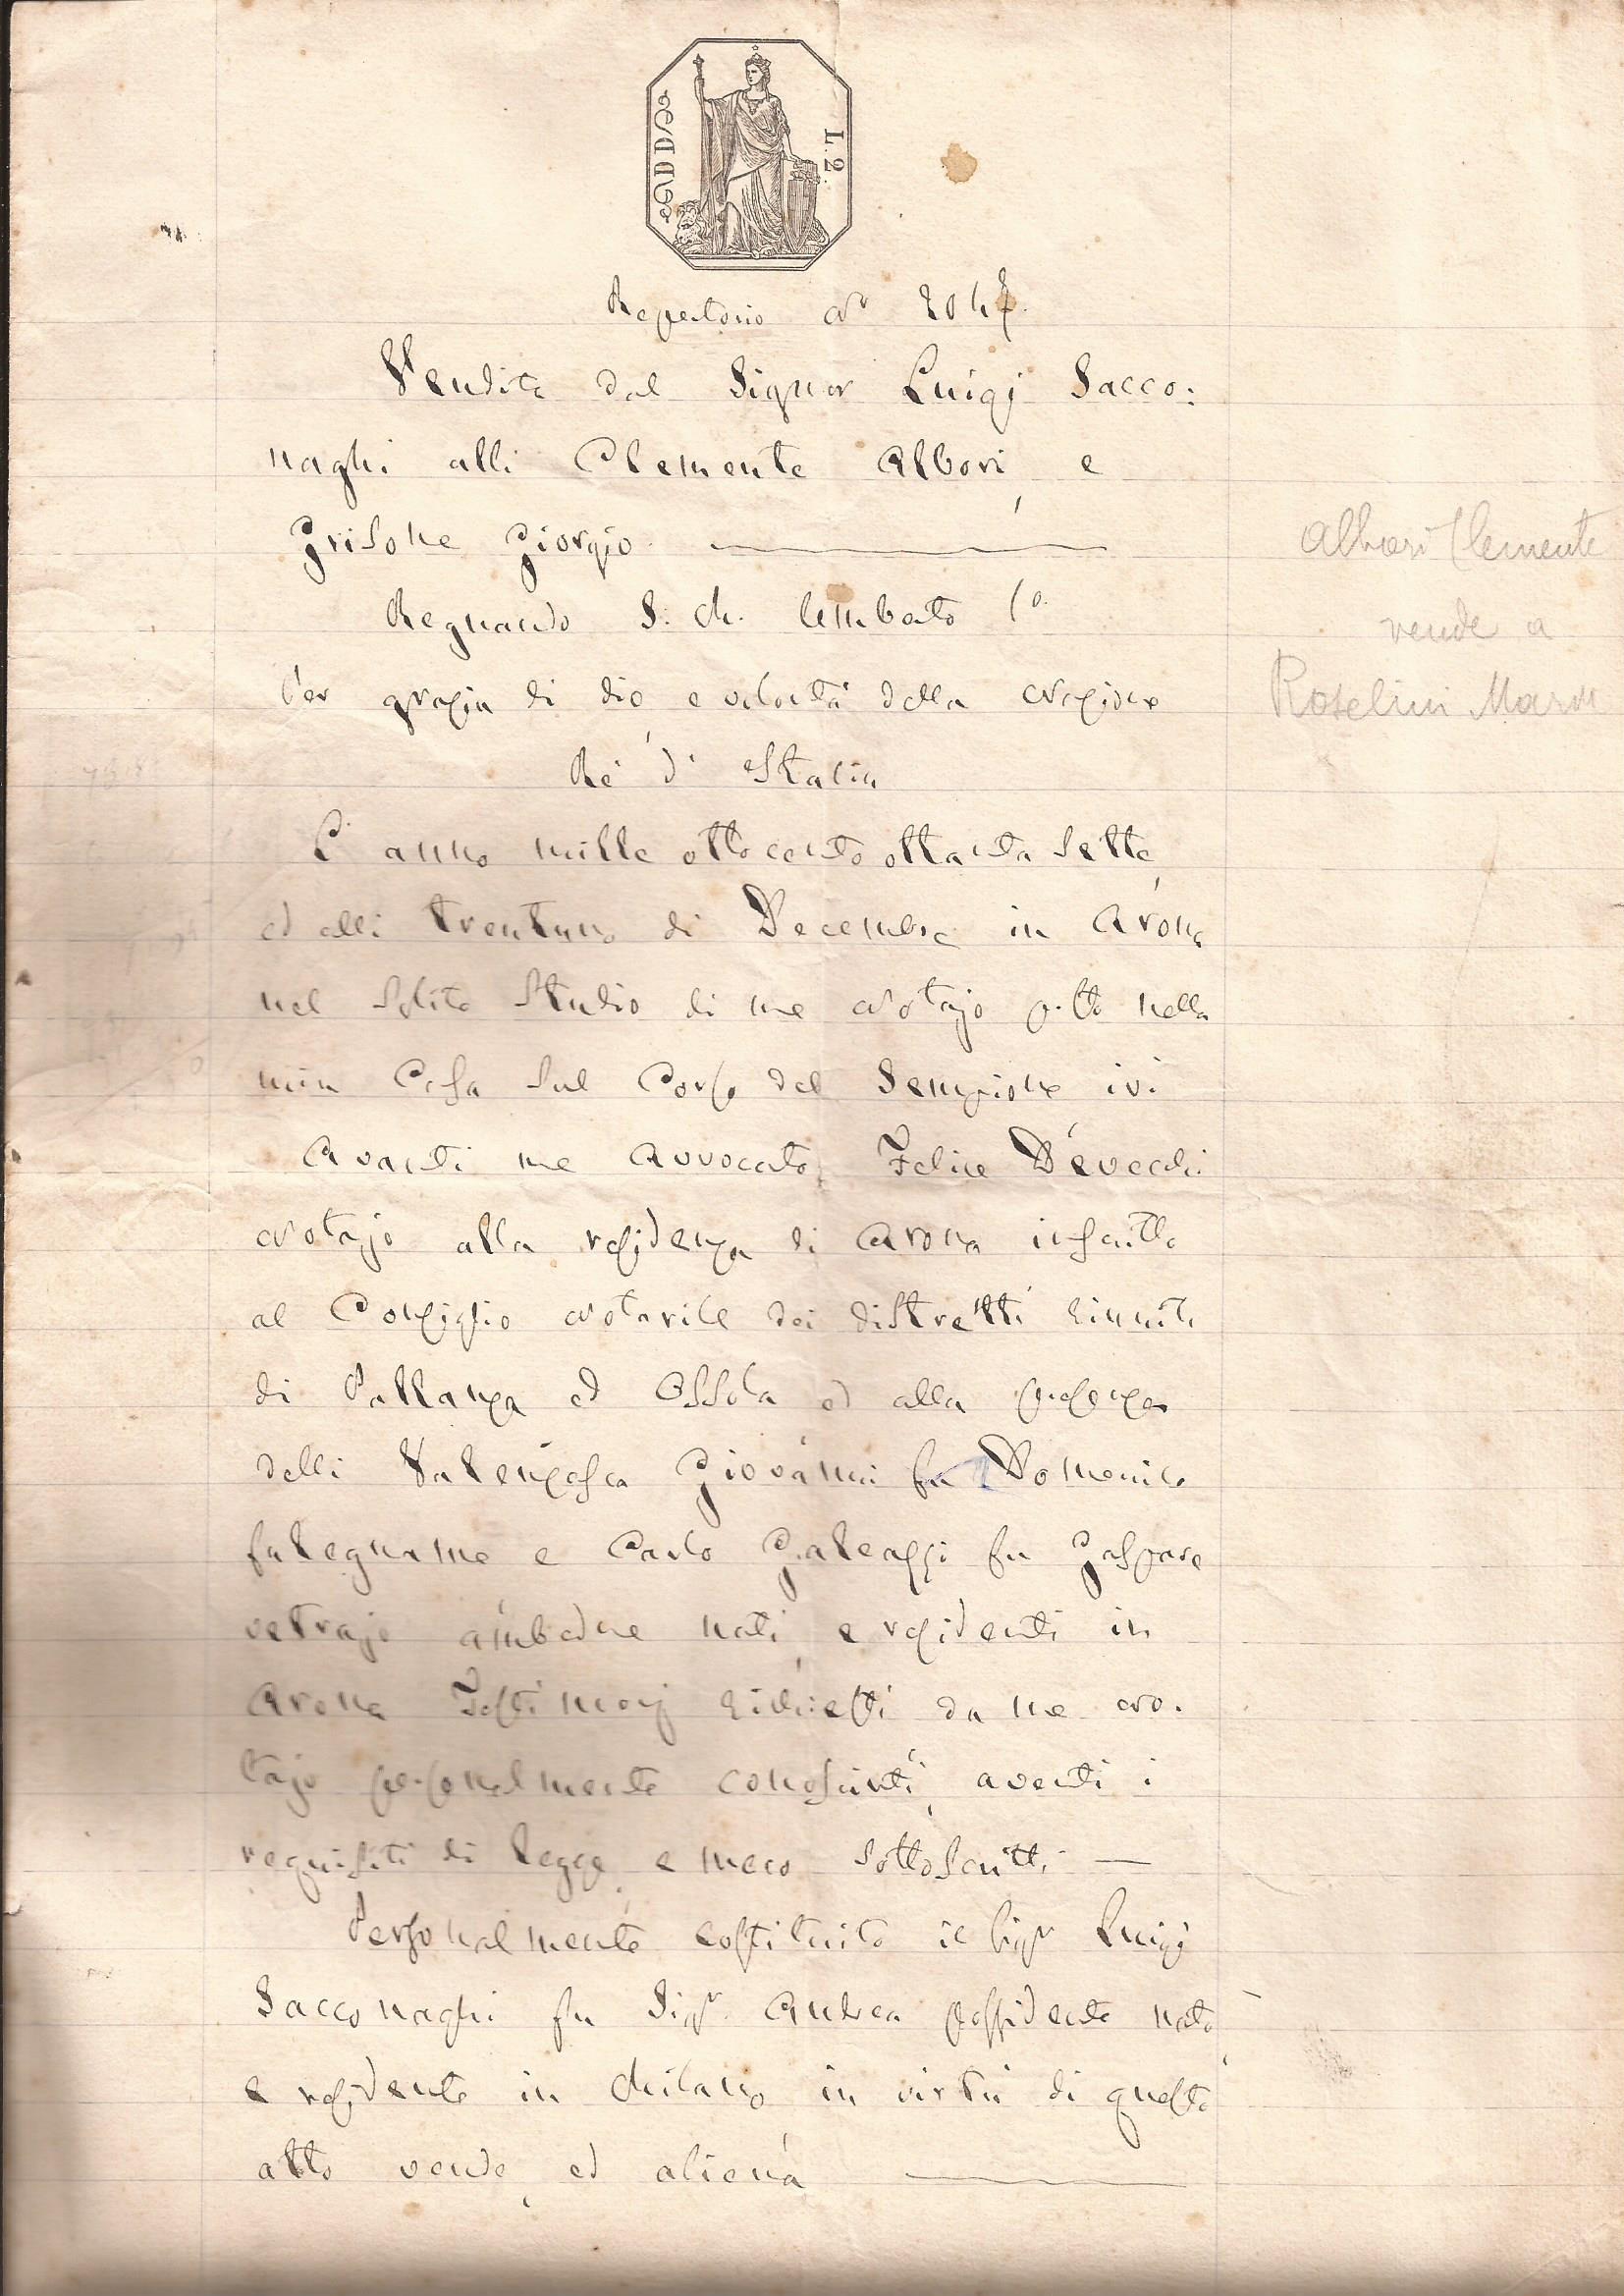 L. 2.
Repertorio N.º 2047.
Vendita dal Signor Luigi Sacco:
naghi alli Clemente Albori, e
Grisone Giorgio.
Regnando S: M. Umberto 1º.
Per grazia di Dio, e volontà della Nazione
Re' d' Italia
L' anno mille otto cento ottanta sette,
ed alli trentuno di Decembre in Arona
nel solito Studio di me Notajo p.tto nella
mia Casa sul Corso del Sempione ivi
Avanti me Avvocato Felice Devecchi
Notajo alla residenza di Arona inscritto
al Consiglio Notarile dei distretti riuniti
di Pallanza ed Ossola ed alla presenza
delli Valenzasca Giovanni fu Domenico
falegname e Carlo Galeazzi fu Gaspare
vetrajo ambedue nati, e residenti in
Arona Testimonj richiesti da me No.
tajo personalmente conosciuti, aventi i
requisiti di legge, e meco sottoscritti
Personalmente costituito il Sigr Luigi
Sacconaghi fu Sigr Andrea possidente nato,
e residente in Milano in virtù di questo
atto vende, ed aliena
Albori Clemente
vende a
Roselini